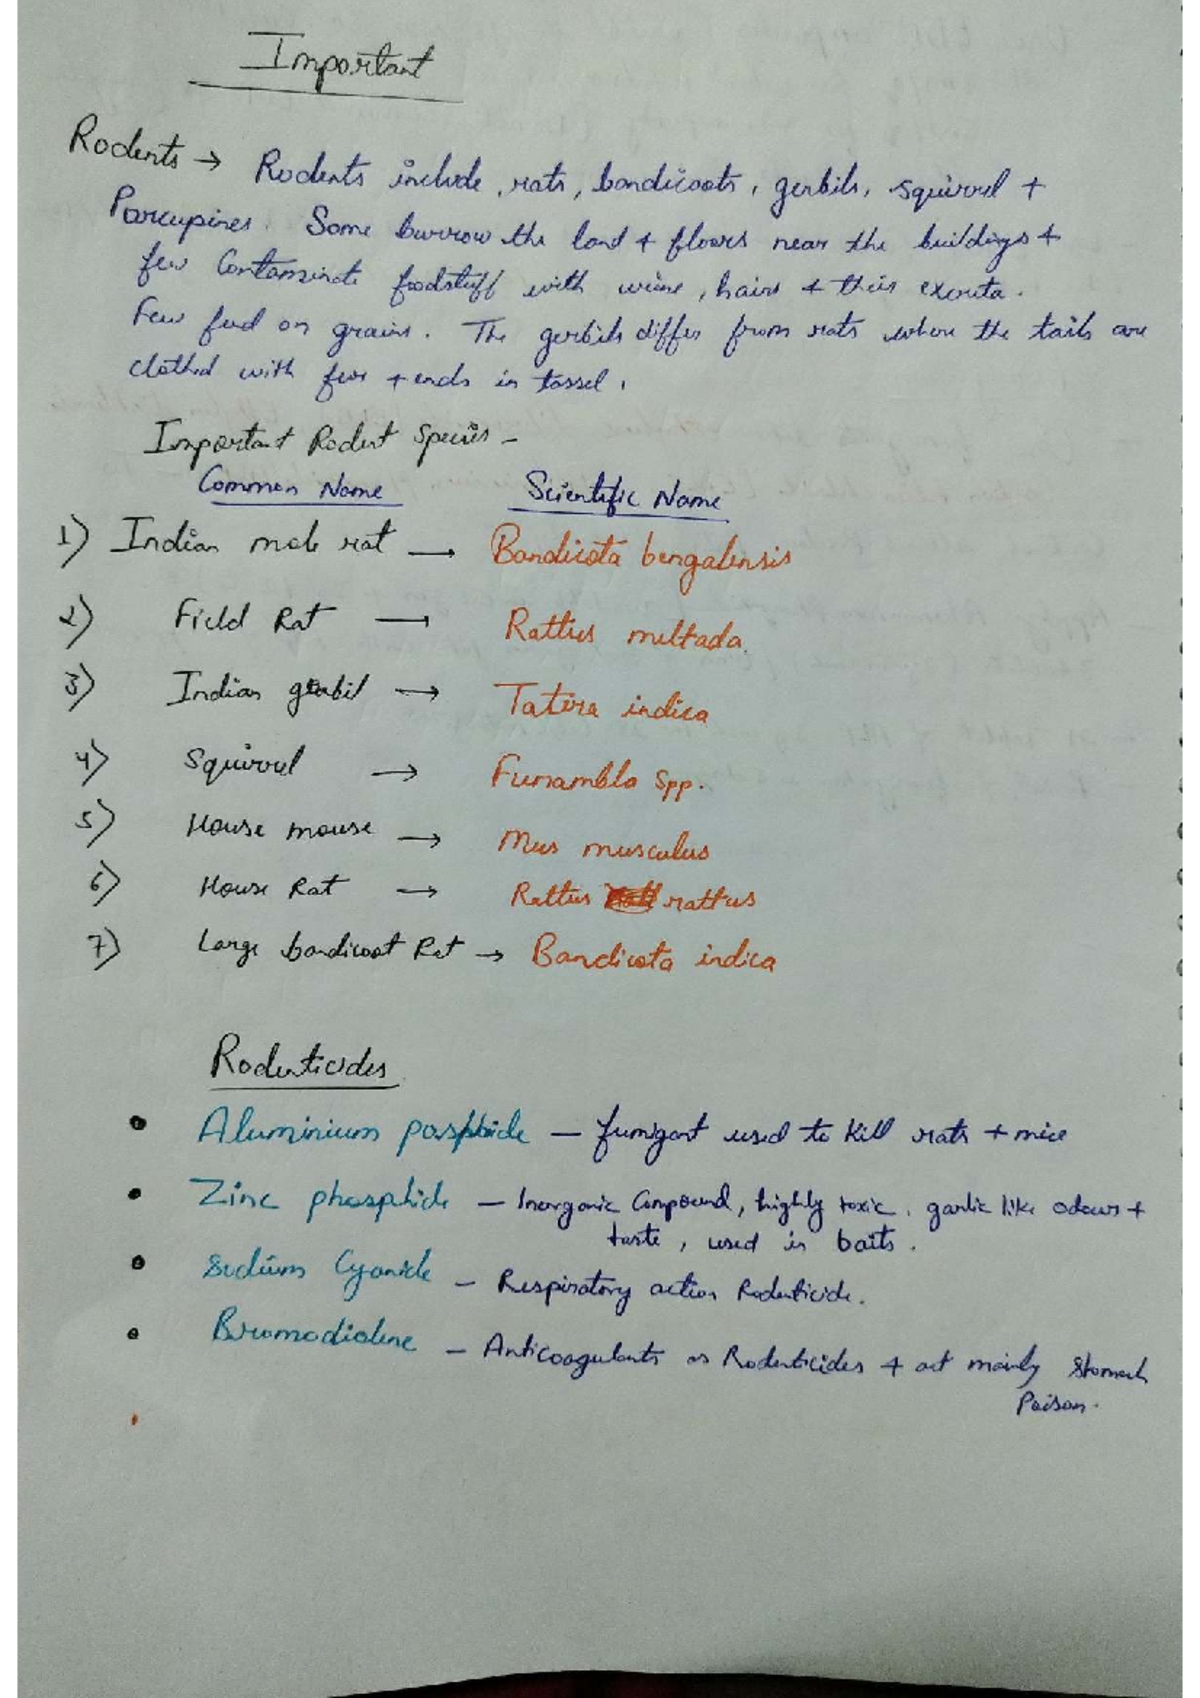 Important
Rodents → Rodents include, rats, bandicoots, gerbils, squirrel +
Porcupines. Some burrow the land + floors near the buildings +
few Contaminate foodstuff with urine, hairs + their excreta.
Few feed on grains. The gerbils differ from rats where the tails are
clothed with fur + ends in tassel.
Important Rodent Species -
Common Name Scientific Name
1) Indian mole rat → Bandicota bengalensis
2) Field Rat → Rattus meltada.
3) Indian gerbil → Tatira indica
4) Squirrel → Funambla Spp.
5) House mouse → Mus musculus
6) House Rat → Rattus rattus
7) Large bandicoot Rat → Bandicota indica
Rodenticides
• Aluminium posphide — fumigant used to kill rats + mice
• Zinc phosphide — Inorganic Compound, highly toxic. garlic like odour +
taste, used in baits.
• Sodium Cyanide — Respiratory action Rodenticide.
• Bromodiolene — Anticoagulants as Rodenticides + act mainly stomach
Poison.